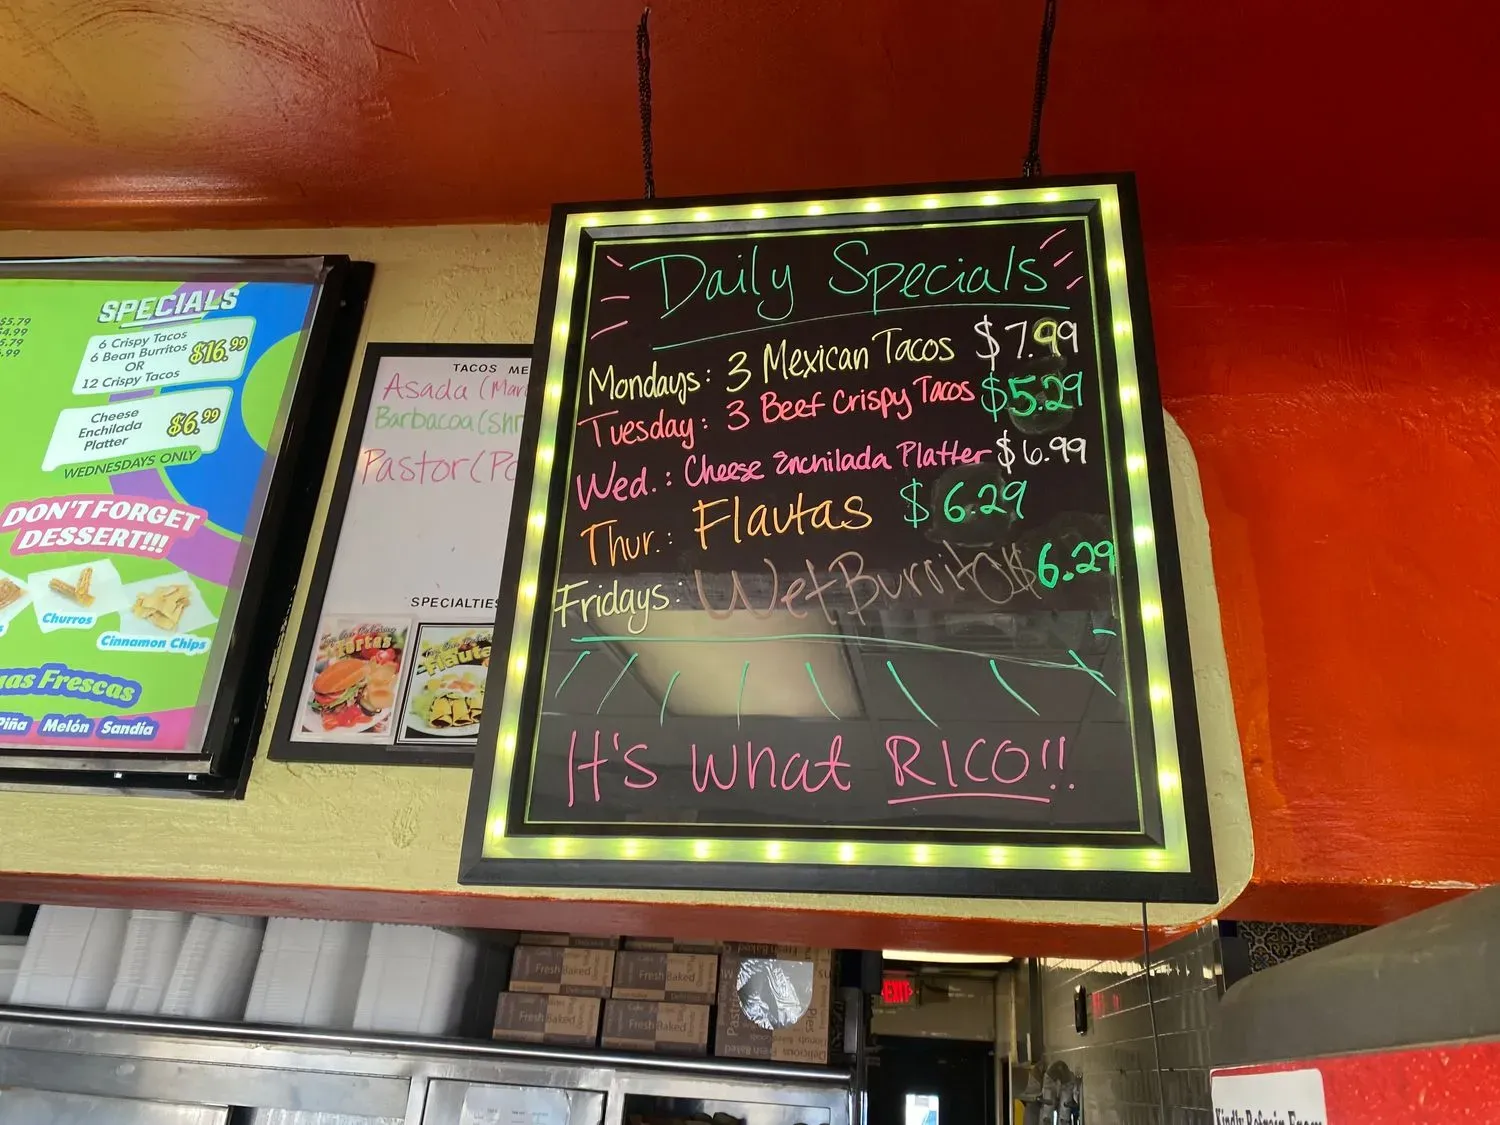 $5.79
4.99
5.79
.99
SPECIALS
6 Crispy Tacos
6 Bean Burritos
OR
12 Crispy Tacos
$16.99
Cheese
Enchilada
Platter
$6.99
WEDNESDAYS ONLY
DON'T FORGET
DESSERT!!!
Churros
Cinnamon Chips
uas Frescas
Piña Melón Sandía
TACOS ME
Asada (Mar
Barbacoa (Shr
Pastor (Po
SPECIALTIES
Tortas
Flauta
Daily Specials
Mondays: 3 Mexican Tacos $7.99
Tuesday: 3 Beef Crispy Tacos $5.29
Wed.: Cheese Enchilada Platter $6.99
Thur.: Flautas $6.29
Fridays: Wet Burrito $6.29
It's what RICO!!
Fresh Baked
Fresh Baked
Fresh Baked
Fresh Baked
EXIT
Kindly Refrain From